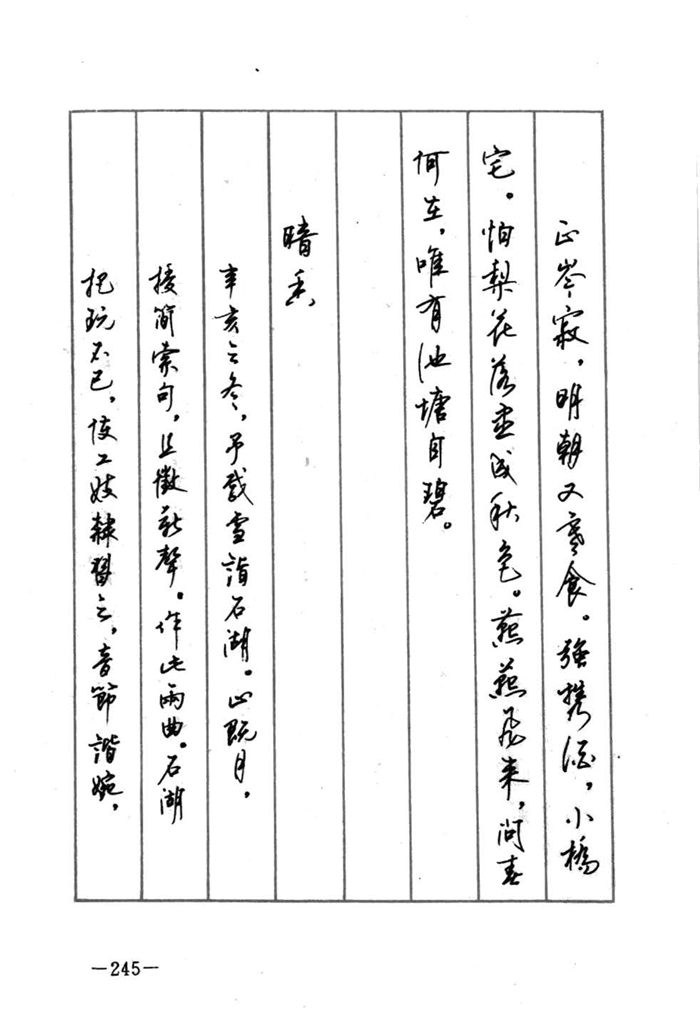 正岑寂，明朝又寒食。强携酒，小橋
宅。怕梨花落盡成秋色。燕燕飛来，問春
何在，唯有池塘自碧。
暗香
辛亥之冬，予载雪詣石湖。止既月，
授簡索句，且徵新聲。作此兩曲。石湖
把玩不已，使工妓隸習之，音節諧婉，
—245—